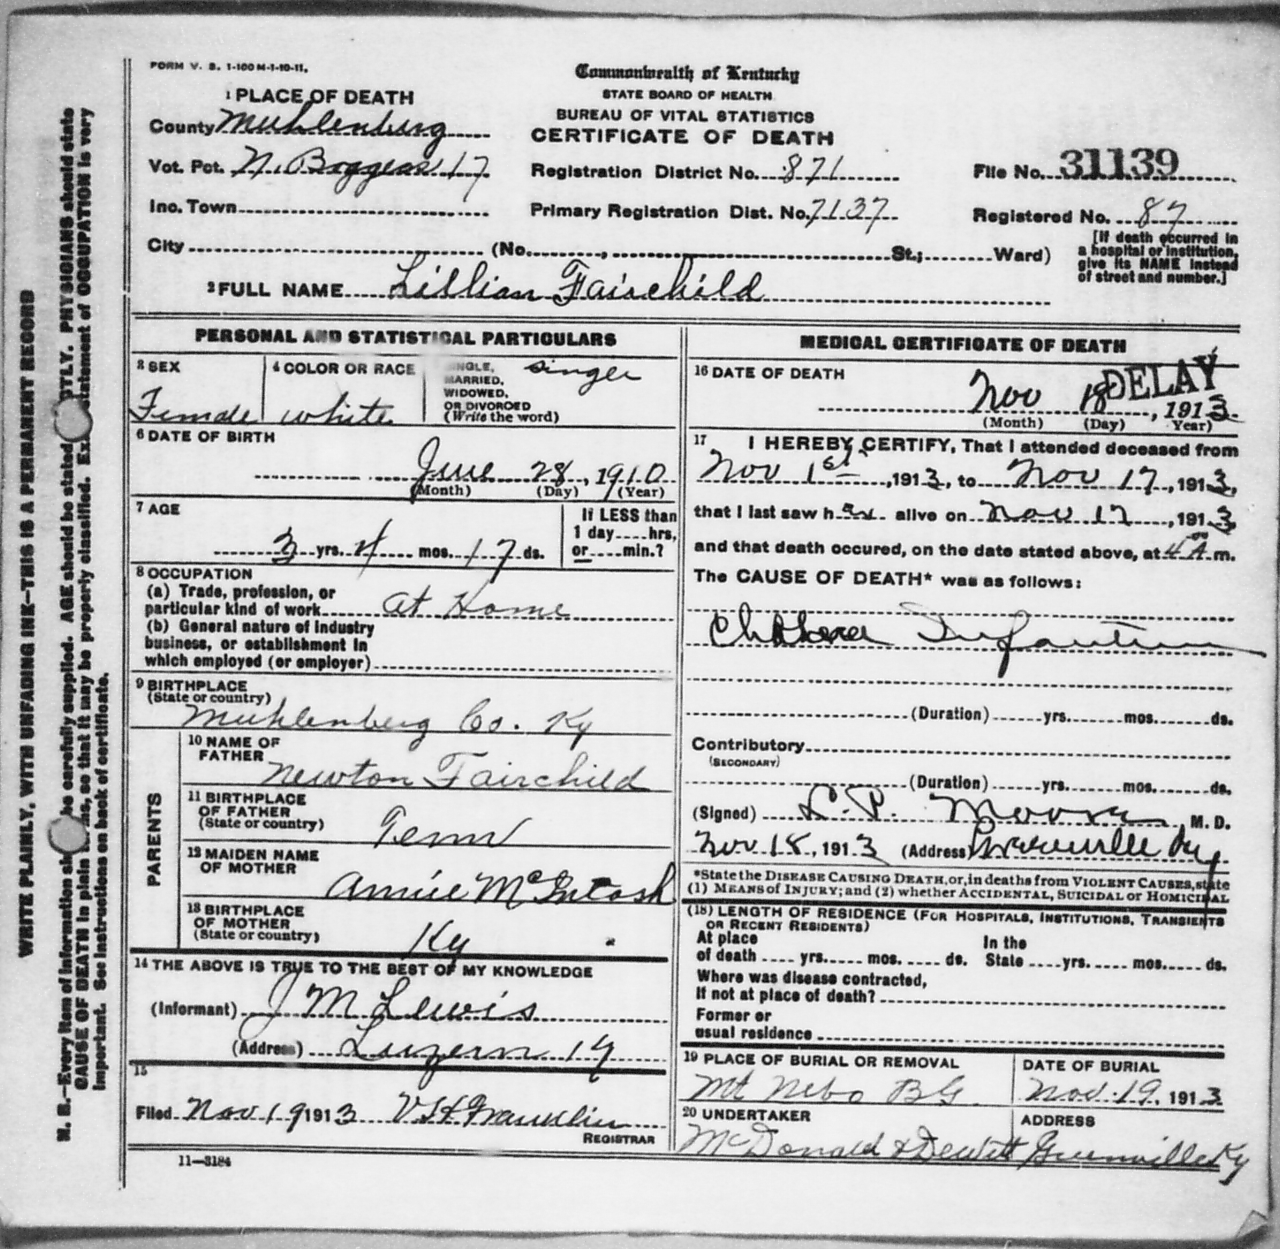 FORM V. S. 1-100 M-1-10-11.
Commonwealth of Kentucky
STATE BOARD OF HEALTH
BUREAU OF VITAL STATISTICS
CERTIFICATE OF DEATH
1 PLACE OF DEATH
County Muhlenberg
Vot. Pct. N. Boggess 17
Inc. Town
Registration District No. 871
Primary Registration Dist. No. 7137
File No. 31139
Registered No. 87
City (No. , St.; Ward)
[If death occurred in
a hospital or institution,
give its NAME instead
of street and number.]
2 FULL NAME Lillian Fairchild
PERSONAL AND STATISTICAL PARTICULARS
3 SEX
Female
4 COLOR OR RACE
white
SINGLE,
MARRIED,
WIDOWED,
OR DIVORCED
(Write the word)
singer
6 DATE OF BIRTH
June 28, 1910
(Month) (Day) (Year)
7 AGE
3 yrs. 4 mos. 17 ds.
If LESS than
1 day hrs,
or min.?
8 OCCUPATION
(a) Trade, profession, or
particular kind of work At Home
(b) General nature of industry
business, or establishment in
which employed (or employer)
9 BIRTHPLACE
(State or country)
Muhlenberg Co. Ky
PARENTS
10 NAME OF
FATHER
Newton Fairchild
11 BIRTHPLACE
OF FATHER
(State or country)
Tenn
12 MAIDEN NAME
OF MOTHER
Annie McIntosh
13 BIRTHPLACE
OF MOTHER
(State or country)
Ky
14 THE ABOVE IS TRUE TO THE BEST OF MY KNOWLEDGE
(Informant) J M Lewis
(Address) Luzern Ky
15
Filed Nov 19 1913
REGISTRAR
11-3184
MEDICAL CERTIFICATE OF DEATH
16 DATE OF DEATH
DELAY
Nov 18, 1913
(Month) (Day) Year)
17 I HEREBY CERTIFY, That I attended deceased from
Nov 1st, 1913, to Nov 17, 1913,
that I last saw her alive on Nov 17, 1913
and that death occured, on the date stated above, at 4 A m.
The CAUSE OF DEATH* was as follows:
Cholera Infantum
(Duration) yrs. mos. ds.
Contributory
(SECONDARY)
(Duration) yrs. mos. ds.
(Signed) L. P. Moore M. D.
Nov 18, 1913 (Address) Greenville Ky
*State the DISEASE CAUSING DEATH, or, in deaths from VIOLENT CAUSES, state
(1) MEANS of INJURY; and (2) whether ACCIDENTAL, SUICIDAL or HOMICIDAL
(18) LENGTH OF RESIDENCE (FOR HOSPITALS, INSTITUTIONS, TRANSIENTS
OR RECENT RESIDENTS)
At place
of death yrs. mos. ds.
In the
State yrs. mos. ds.
Where was disease contracted,
If not at place of death?
Former or
usual residence
19 PLACE OF BURIAL OR REMOVAL
Mt Nebo BG
DATE OF BURIAL
Nov. 19, 1913
20 UNDERTAKER
McDonald & Dewitt
ADDRESS
Greenville Ky
WRITE PLAINLY, WITH UNFADING INK—THIS IS A PERMANENT RECORD
N. B.—Every item of information should be carefully supplied. AGE should be stated EXACTLY. PHYSICIANS should state
CAUSE OF DEATH in plain terms, so that it may be properly classified. Exact statement of OCCUPATION is very
important. See instructions on back of certificate.